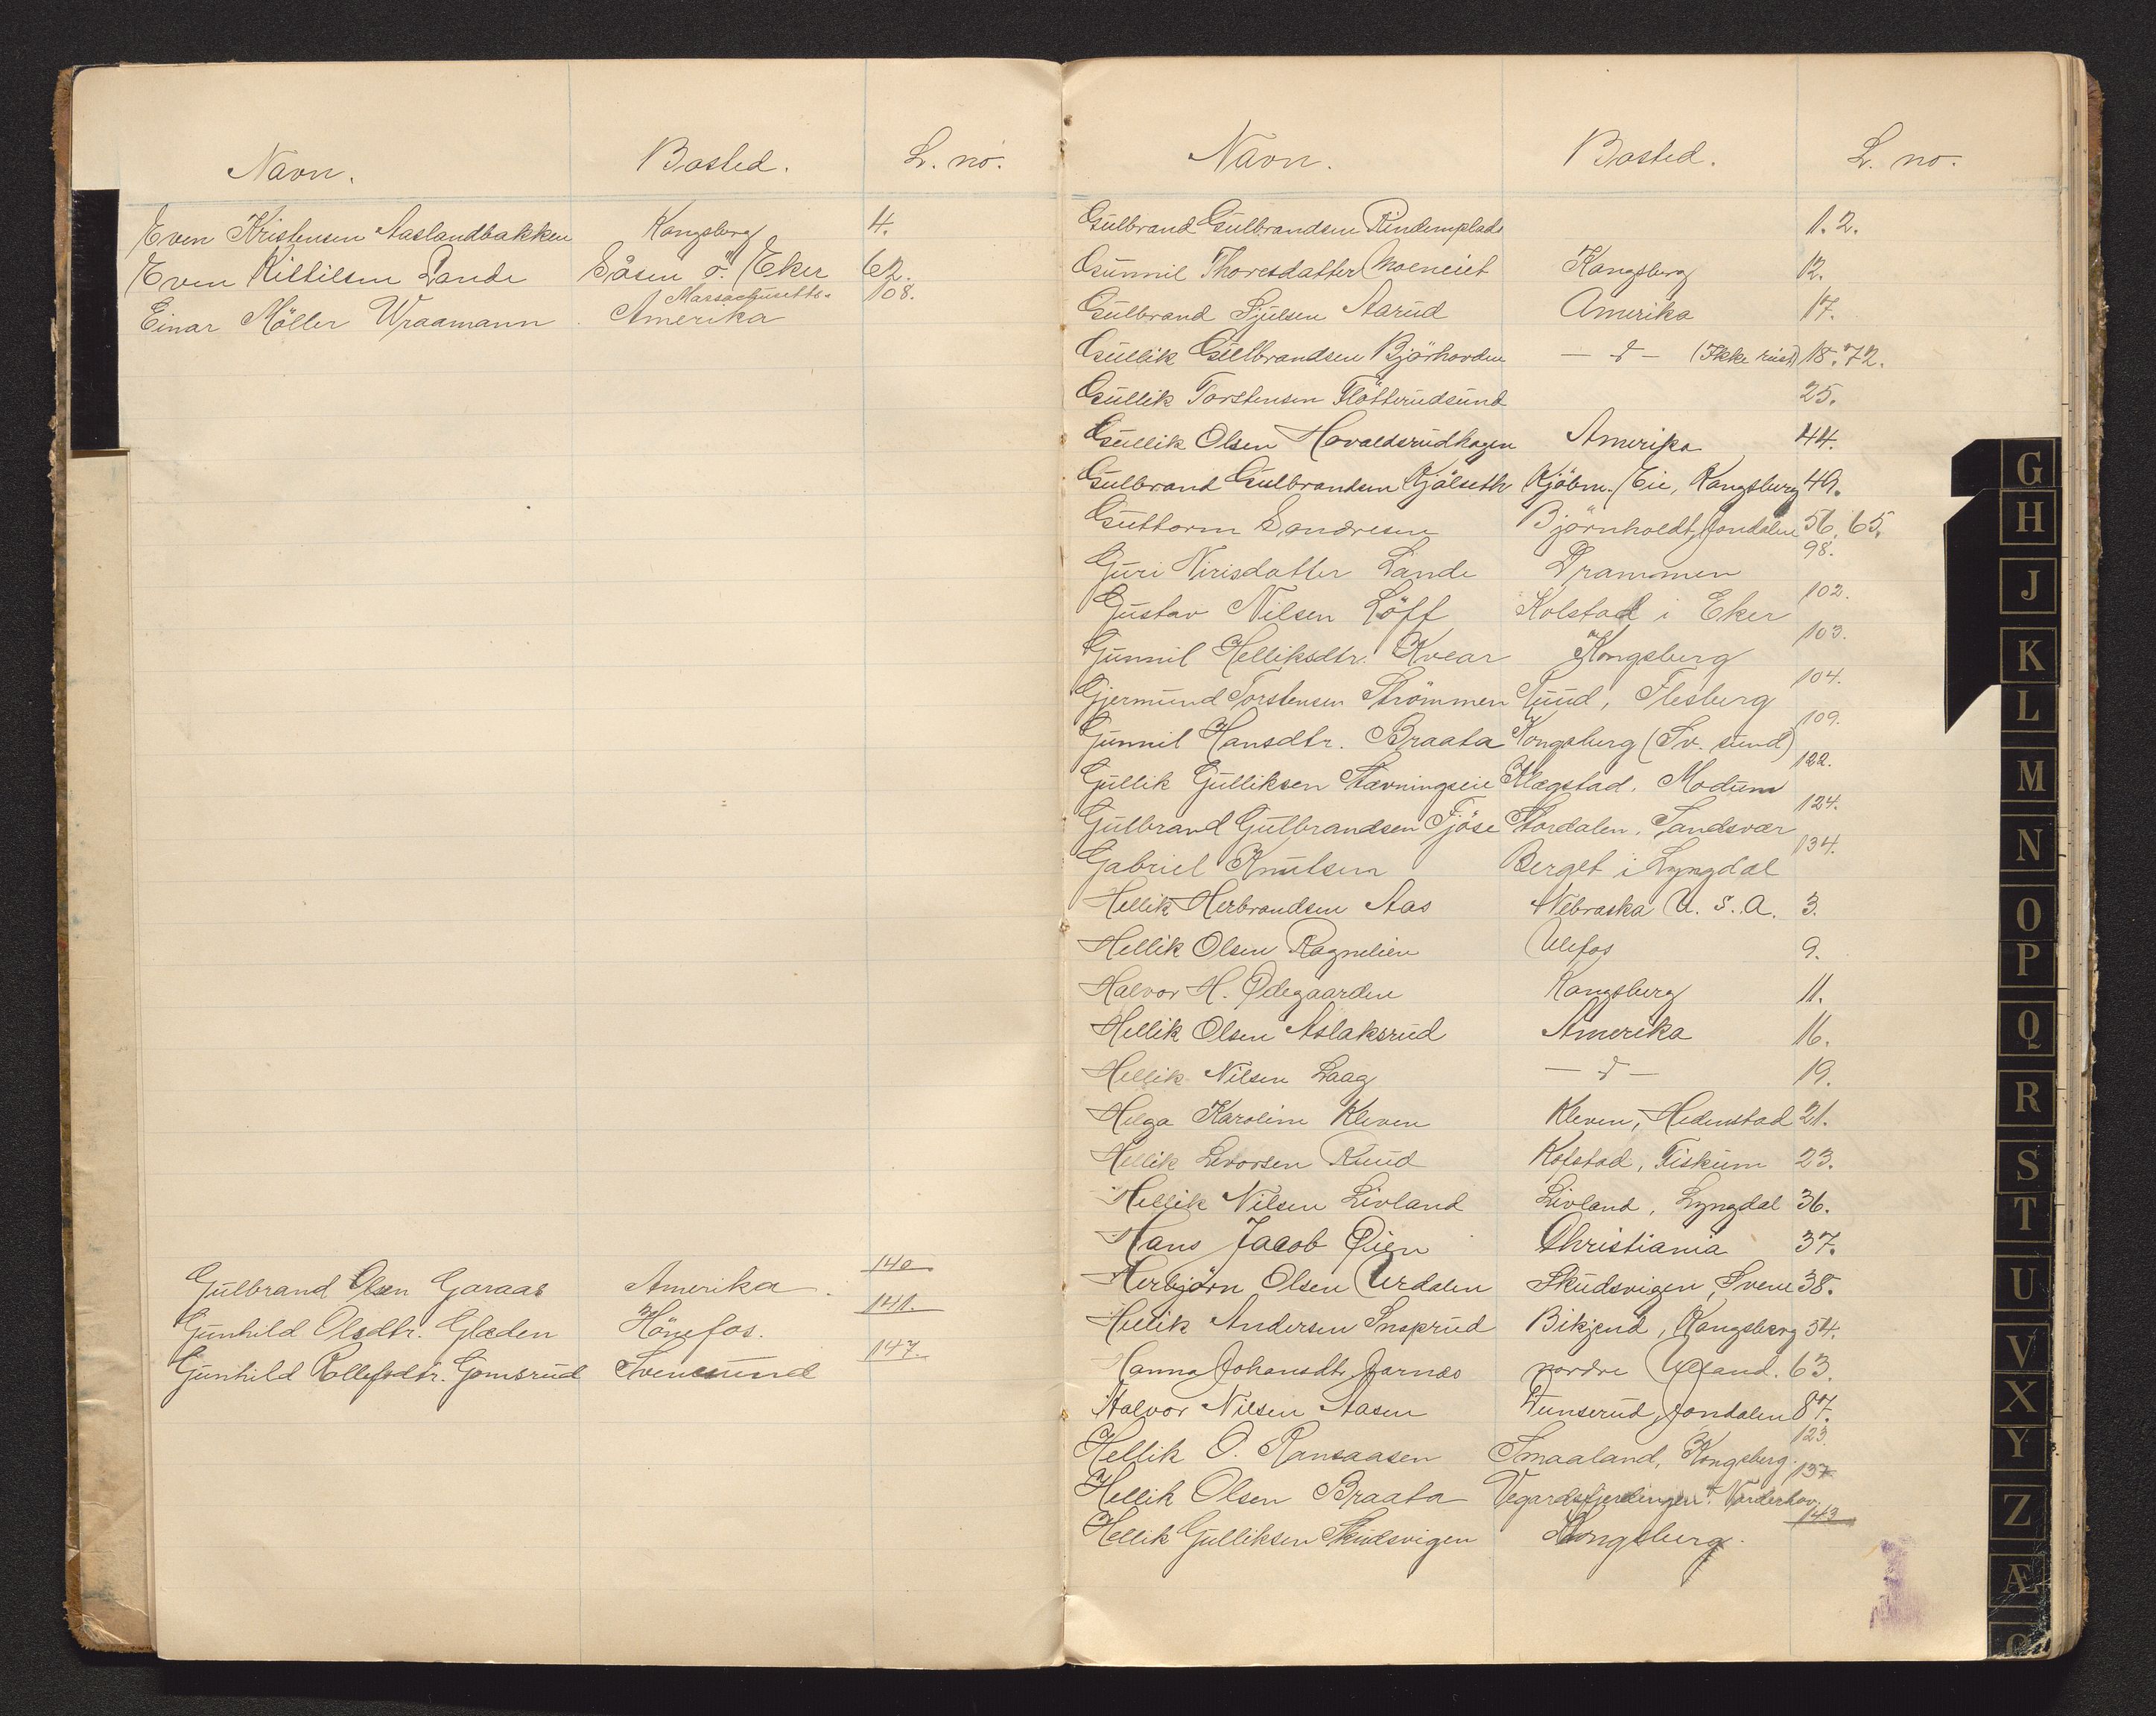 Navn. Bosted. L. no.
Even Kristensen Aaslandbakken Kongsberg 4.
Even Kittilsen Lande Såsen ö. Eker 62.
Massachusetts.
Einar Möller Wraamann Amerika 108.
Gulbrand Olsen Garaas Amerika. 140
Gunhild Olsdtr. Glæden Hönefos. 141.
Gunhild Rollefsdtr. Gomsrud Svenesund 147.
Navn. Bosted. L. no.
Gulbrand Gulbrandsen Rindemplads 1. 2.
Gunnil Thoresdatter Moeneiet Kongsberg 12.
Gulbrand Sjulsen Aarud Amerika 17.
Gullik Gulbrandsen Björhovden — d — (Ikke reist) 18. 72.
Gullik Torstensen Flötterudsund 25.
Gullik Olsen Havaldsrudhagen Amerika 44.
Gulbrand Gulbrandsen Kjölseth Kjöbm. Eie, Kongsberg 49.
Guttorm Sondresen Björnholdt, Jondalen 56. 65.
Guri Nirisdatter Lande Drammen 98.
Gustav Nilsen Löff Kolstad i Eker 102.
Gunnil Helliksdtr. Kvear Kongsberg 103.
Gjermund Torstensen Strömmen Ruud, Flesberg 104.
Gunnil Hansdtr. Braata Kongsberg (Sv. sund) 109.
Gullik Gulliksen Stavningseie Klægstad. Modum 122.
Gulbrand Gulbrandsen Fjöse Stordalen. Sandsvær 124.
Gabriel Knutsen Berget i Lyngdal 134.
Hellik Herbrandsen Aas Nebraska U. S. A. 3.
Hellik Olsen Ragnelien Ulefos 9.
Halvor H. Ødegaarden Kongsberg 11.
Hellik Olsen Aslaksrud Amerika 16.
Hellik Nilsen Laag — d — 19.
Helga Karoline Kleven Kleven, Hedenstad 21.
Hellik Levorsen Ruud Kolstad, Fiskum 23.
Hellik Nilsen Livland Livland, Lyngdal 36.
Hans Jacob Øien Christiania 37.
Herbjörn Olsen Urdalen Skudsvigen, Svene 38.
Hellik Andersen Insprud Bikjend, Kongsberg 54.
Hanna Johansdtr. Jarnæs nordre Ulland. 63.
Halvor Nilsen Aasen Tunserud, Jondalen 87.
Hellik O. Ransaasen Smaaland, Kongsberg. 123.
Hellik Olsen Braata Vegardsfjerdingen 137.
Hellik Gulliksen Skudsvigen Kongsberg. 143
G
H
J
K
L
M
N
O
P
Q
R
S
T
U
V
X
Y
Z
Æ
Ø